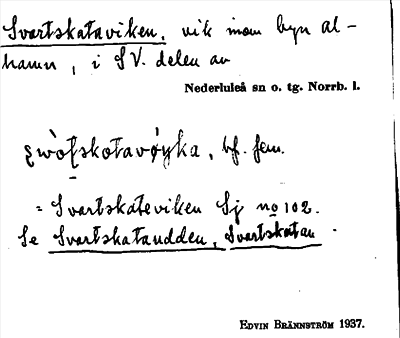 Svartskataviken, vik inom byn al-
hamn, i SV. delen av
Nederluleå sn o. tg. Norrb. l.
bf. fem.
= Svartskateviken Sj no 102.
Se Svartskataudden, Svartskatan
EDVIN BRÄNNSTRÖM 1937.